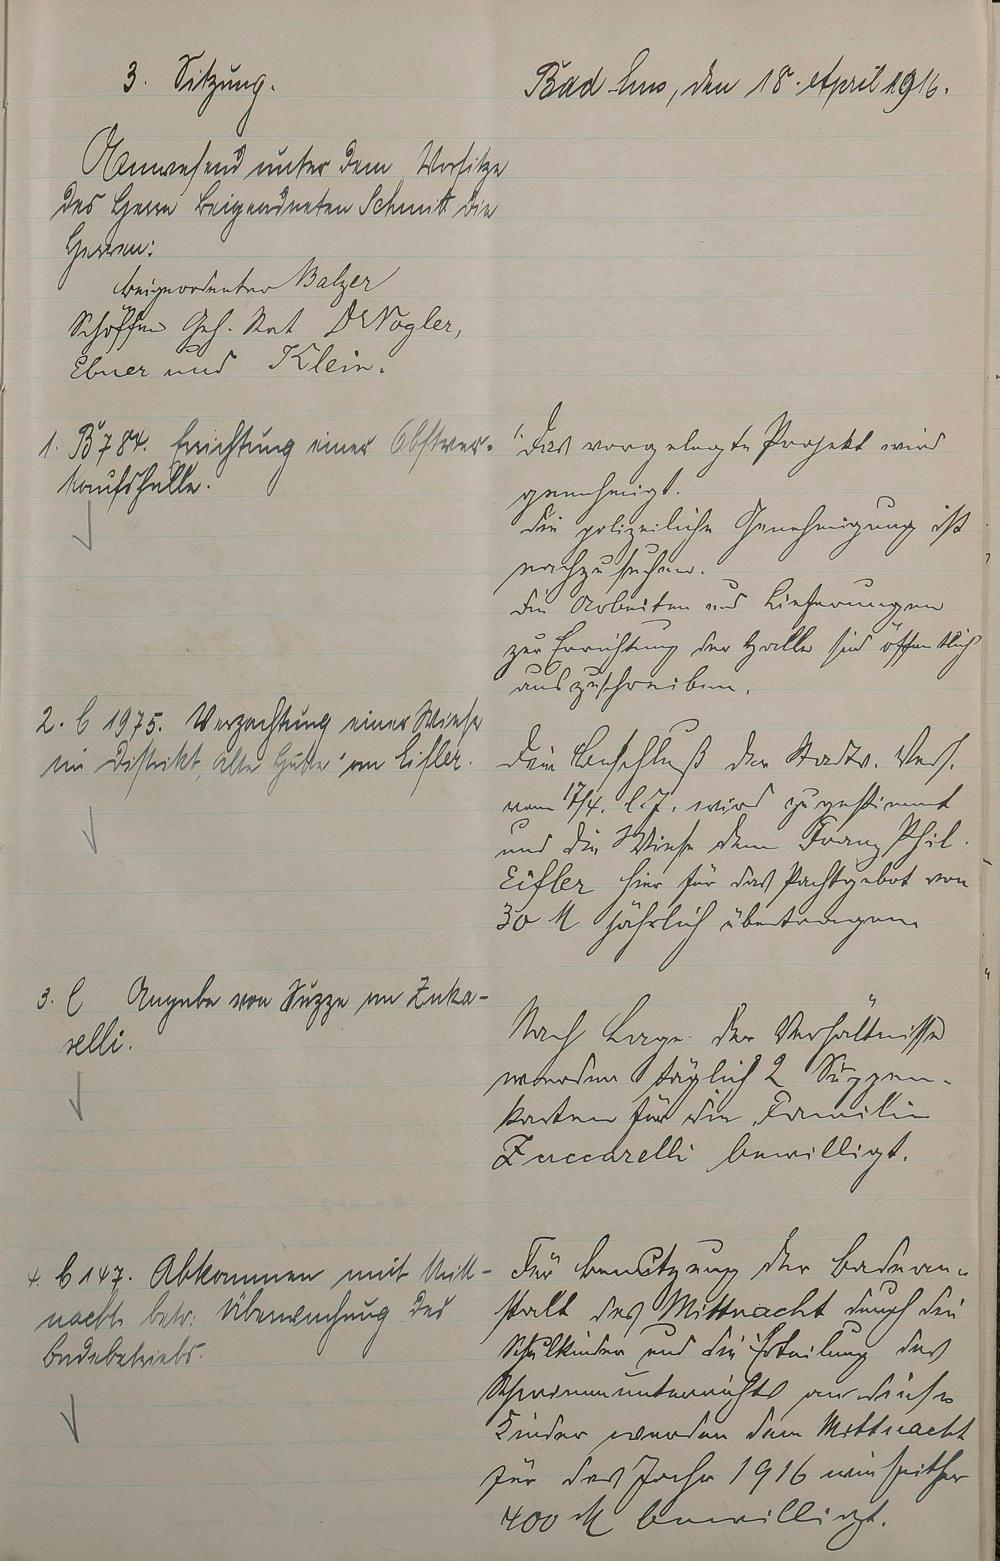 3. Sitzung.
Bad Ems, den 18. April 1916.
Anwesend unter dem Vorsitze
des Herrn Beigeordneten Schmitt die
Herren:
Beigeordneter Balzer
Schöffen Geh. Rat Dr Vogler,
Ebner und Klein.
1. B 784. Errichtung einer Obstver-
kaufshalle.
1. Das vorgelegte Projekt wird
genehmigt.
Die polizeiliche Genehmigung ist
nachzusuchen.
Die Arbeiten und Lieferungen
zur Errichtung der Halle sind öffentlich
auszuschreiben.
2. C 1975. Verpachtung einer Wiese
im Distrikt "Alte Hütte" an Eifler.
Dem Beschluß der Stadtv. Vers.
vom 17/4. l. J. wird zugestimmt
und die Wiese dem Franz Phil.
Eifler hier für das Pachtgebot von
30 M jährlich übertragen
3. C Angabe von Suppe an Zuka-
relli.
Nach Lage der Verhältnisse
werden täglich 2 Suppen-
karten für die Familie
Zuccarelli bewilligt.
4. C 147. Abkommen mit Mitt-
nacht betr. Überwachung des
Badebetriebs.
Für Benutzung der Badean-
stalt des Mittnacht durch die
Schulkinder und die Erteilung des
Schwimmunterrichts an diese
Kinder werden dem Mittnacht
für das Jahr 1916 wie seither
400 M bewilligt.